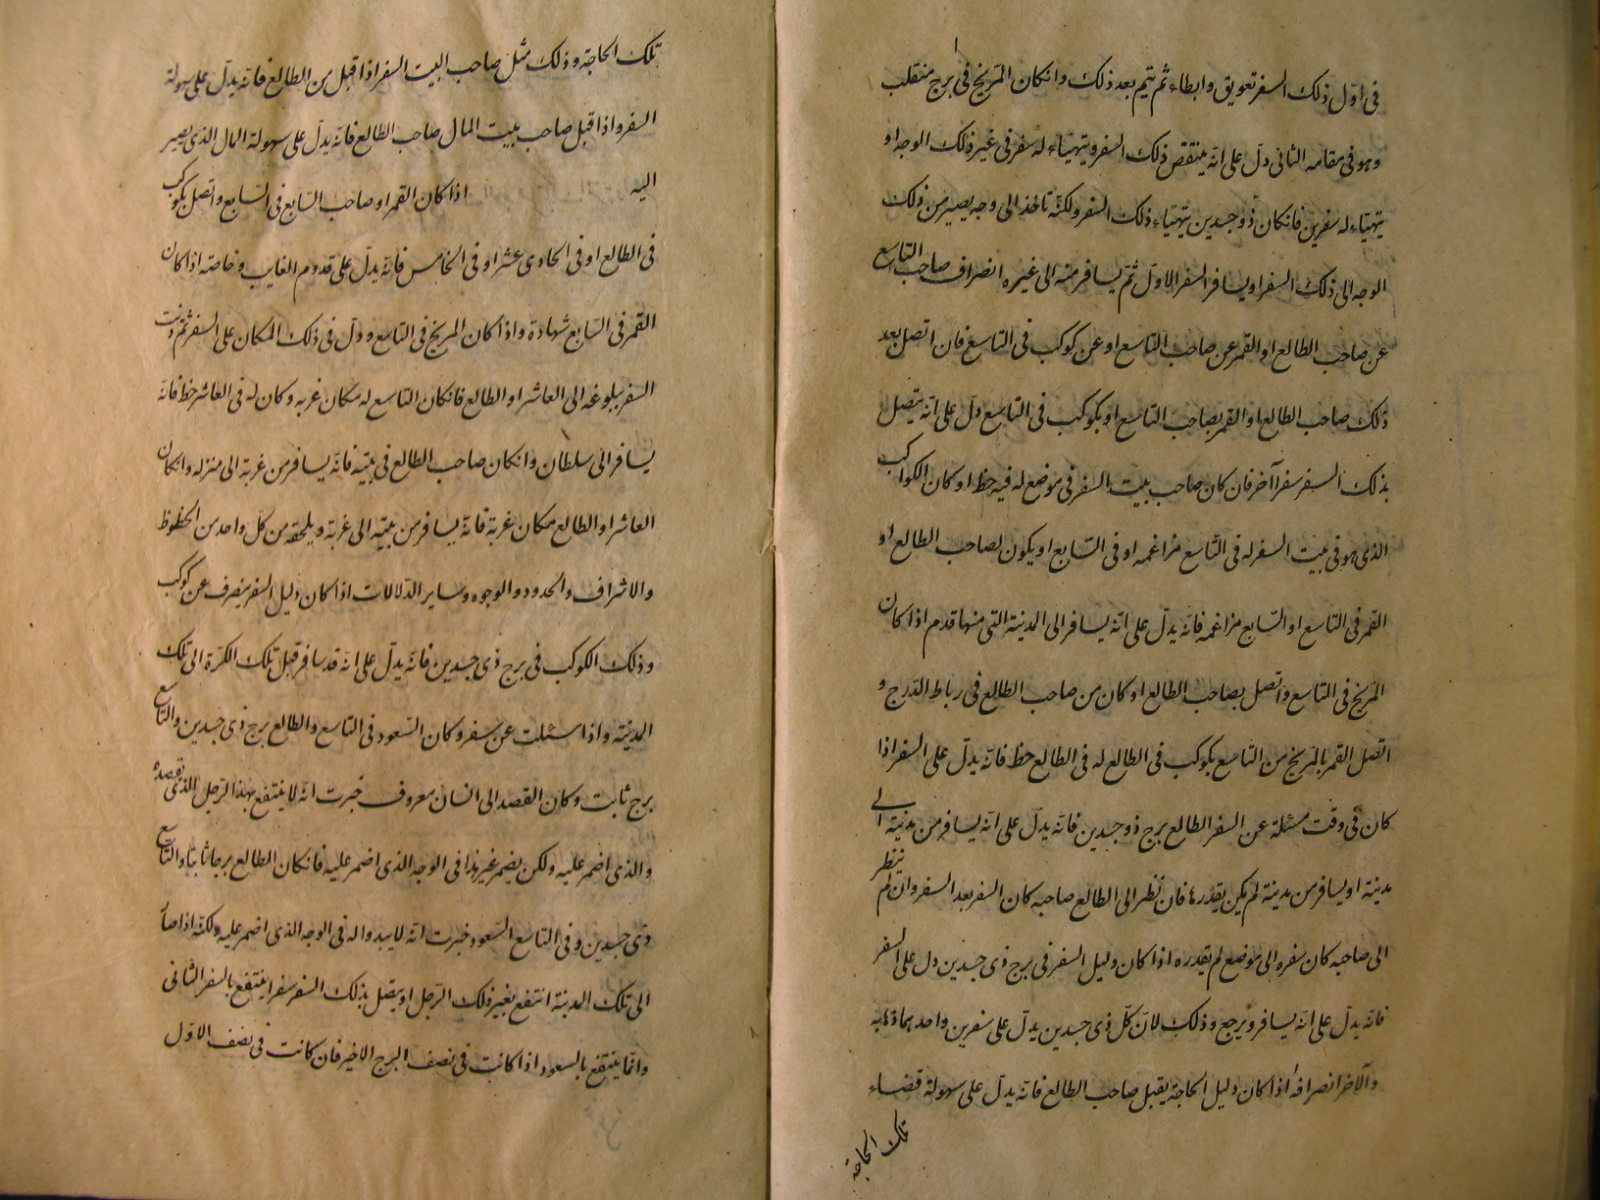 فى اوّل ذلك السفر تعويق وابطاء ثم يتم بعد ذلك وانكان المريخ فى برج منقلب
وهو فى مقامه الثانى دلّ على انّه ينتقض ذلك السفر ويتهيّاء له سفر فى غير ذلك الوجه او
يتهيّاء له سفرين فانكان ذو جسدين يتهيّاء ذلك السفر ولكنّه تاخذ الى وجه يصير من ذلك
الوجه الى ذلك السفر او يسافر السفر الاوّل ثمّ يسافر منه الى غيره انصراف صاحب التاسع
عن صاحب الطالع او القمر عن صاحب التاسع او عن كوكب فى التاسع فان اتصل بعد
ذلك صاحب الطالع او القمر بصاحب التاسع او بكوكب فى التاسع دلّ على انّه يتصل
بذلك السفر سفرا آخر فان كان صاحب بيت السفر فى موضع له فيه حظ او كان الكواكب
الذى هو فى بيت السفر له فى التاسع مزاغمه او فى السّابع او يكون لصاحب الطالع او
القمر فى التاسع او السّابع مزاغمه فانّه يدلّ على انّه يسافر الى المدينة التى منها قدم اذا كان
المريخ فى التاسع واتصل بصاحب الطالع او كان من صاحب الطالع فى رباط الدّرج و
اتصل القمر بالمريخ من التاسع بكوكب فى الطالع له فى الطالع حظ فانّه يدلّ على السفر اذا
كان فى وقت مسئلة عن السفر الطالع برج ذو جسدين فانّه يدلّ على انّه يسافر من مدينة الى
مدينة او يسافر من مدينة لم يكن يقدرها فان نظر الى الطالع صاحبه كان السفر بعد السفر وان لم ينظر
الى صاحبه كان سفره الى موضع لم يقدره اذا كان دليل السفر فى برج ذى جسدين دل على السفر
فانّه يدلّ على انّه يسافر ويرجع وذلك لانّ كلّ ذى جسدين يدلّ على سفرين واحد بها ذهابه
والآخر انصرافه اذا كان دليل الحاجة يقبل صاحب الطالع فانّه يدلّ على سهولة قضاء
تلك الحاجة
تلك الحاجة وذلك مثل صاحب البيت السفر اذا قبل من الطالع فانّه يدلّ على سهولة
السفر واذا قبل صاحب بيت المال صاحب الطالع فانّه يدلّ على سهولة المال الذى يصير
اليه اذا كان القمر او صاحب السّابع فى السّابع واتصل بكوكب
فى الطالع او فى الحادى عشر او فى الخامس فانّه يدلّ على قدوم الغايب وخاصه اذا كان
القمر فى السّابع شهادة واذا كان المريخ فى التاسع ودلّ فى ذلك المكان على السفر ثمّ
السفر ببلوغه الى العاشر او الطالع فانكان التاسع له مكان غربه وكان له فى العاشر حظ فانّه
يسافر الى سلطان وانكان صاحب الطالع فى بيته فانّه يسافر من غربة الى منزله وانكان
العاشر او الطالع مكان غربة فانّه يسافر من بيته الى غربة ويلحقه من كل واحد من الحظوظ
والاشراف والحدود والوجوه وساير الدّلالات اذا كان دليل السفر ينصرف عن كوكب
وذلك الكوكب فى برج ذى جسدين فانّه يدلّ على انّه قد سافر قبل تلك الكرّة الى تلك
المدينة واذا سئلت عن سفر وكان السّعود فى التاسع والطالع برج ذى جسدين والتاسع
برج ثابت وكان القصد الى انسان معروف خبرت انّه لا ينتفع بهذا الرجل الذى تقصده
والذى اضمر عليه ولكن يضمر غير هذا فى الوجه الذى اضمر عليه فانكان الطالع برجا ثابتا والتاسع
ذى جسدين وفى التاسع السّعود خبرت انّه لا يبدوا له فى الوجه الذى اضمر عليه ولكنّه اذا صار
الى تلك المدينة انتفع بغير ذلك الرّجل او يتصل بذلك السفر سفرا ينتفع بالسفر الثانى
وانّما ينتفع بالسعود اذا كانت فى نصف البرج الاخير فان كانت فى نصف الاوّل